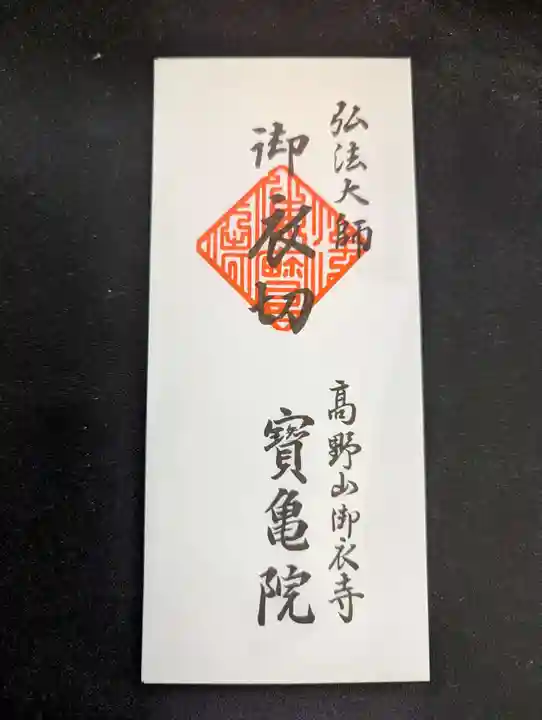 弘法大師
御衣切
高野山御衣寺
寶亀院